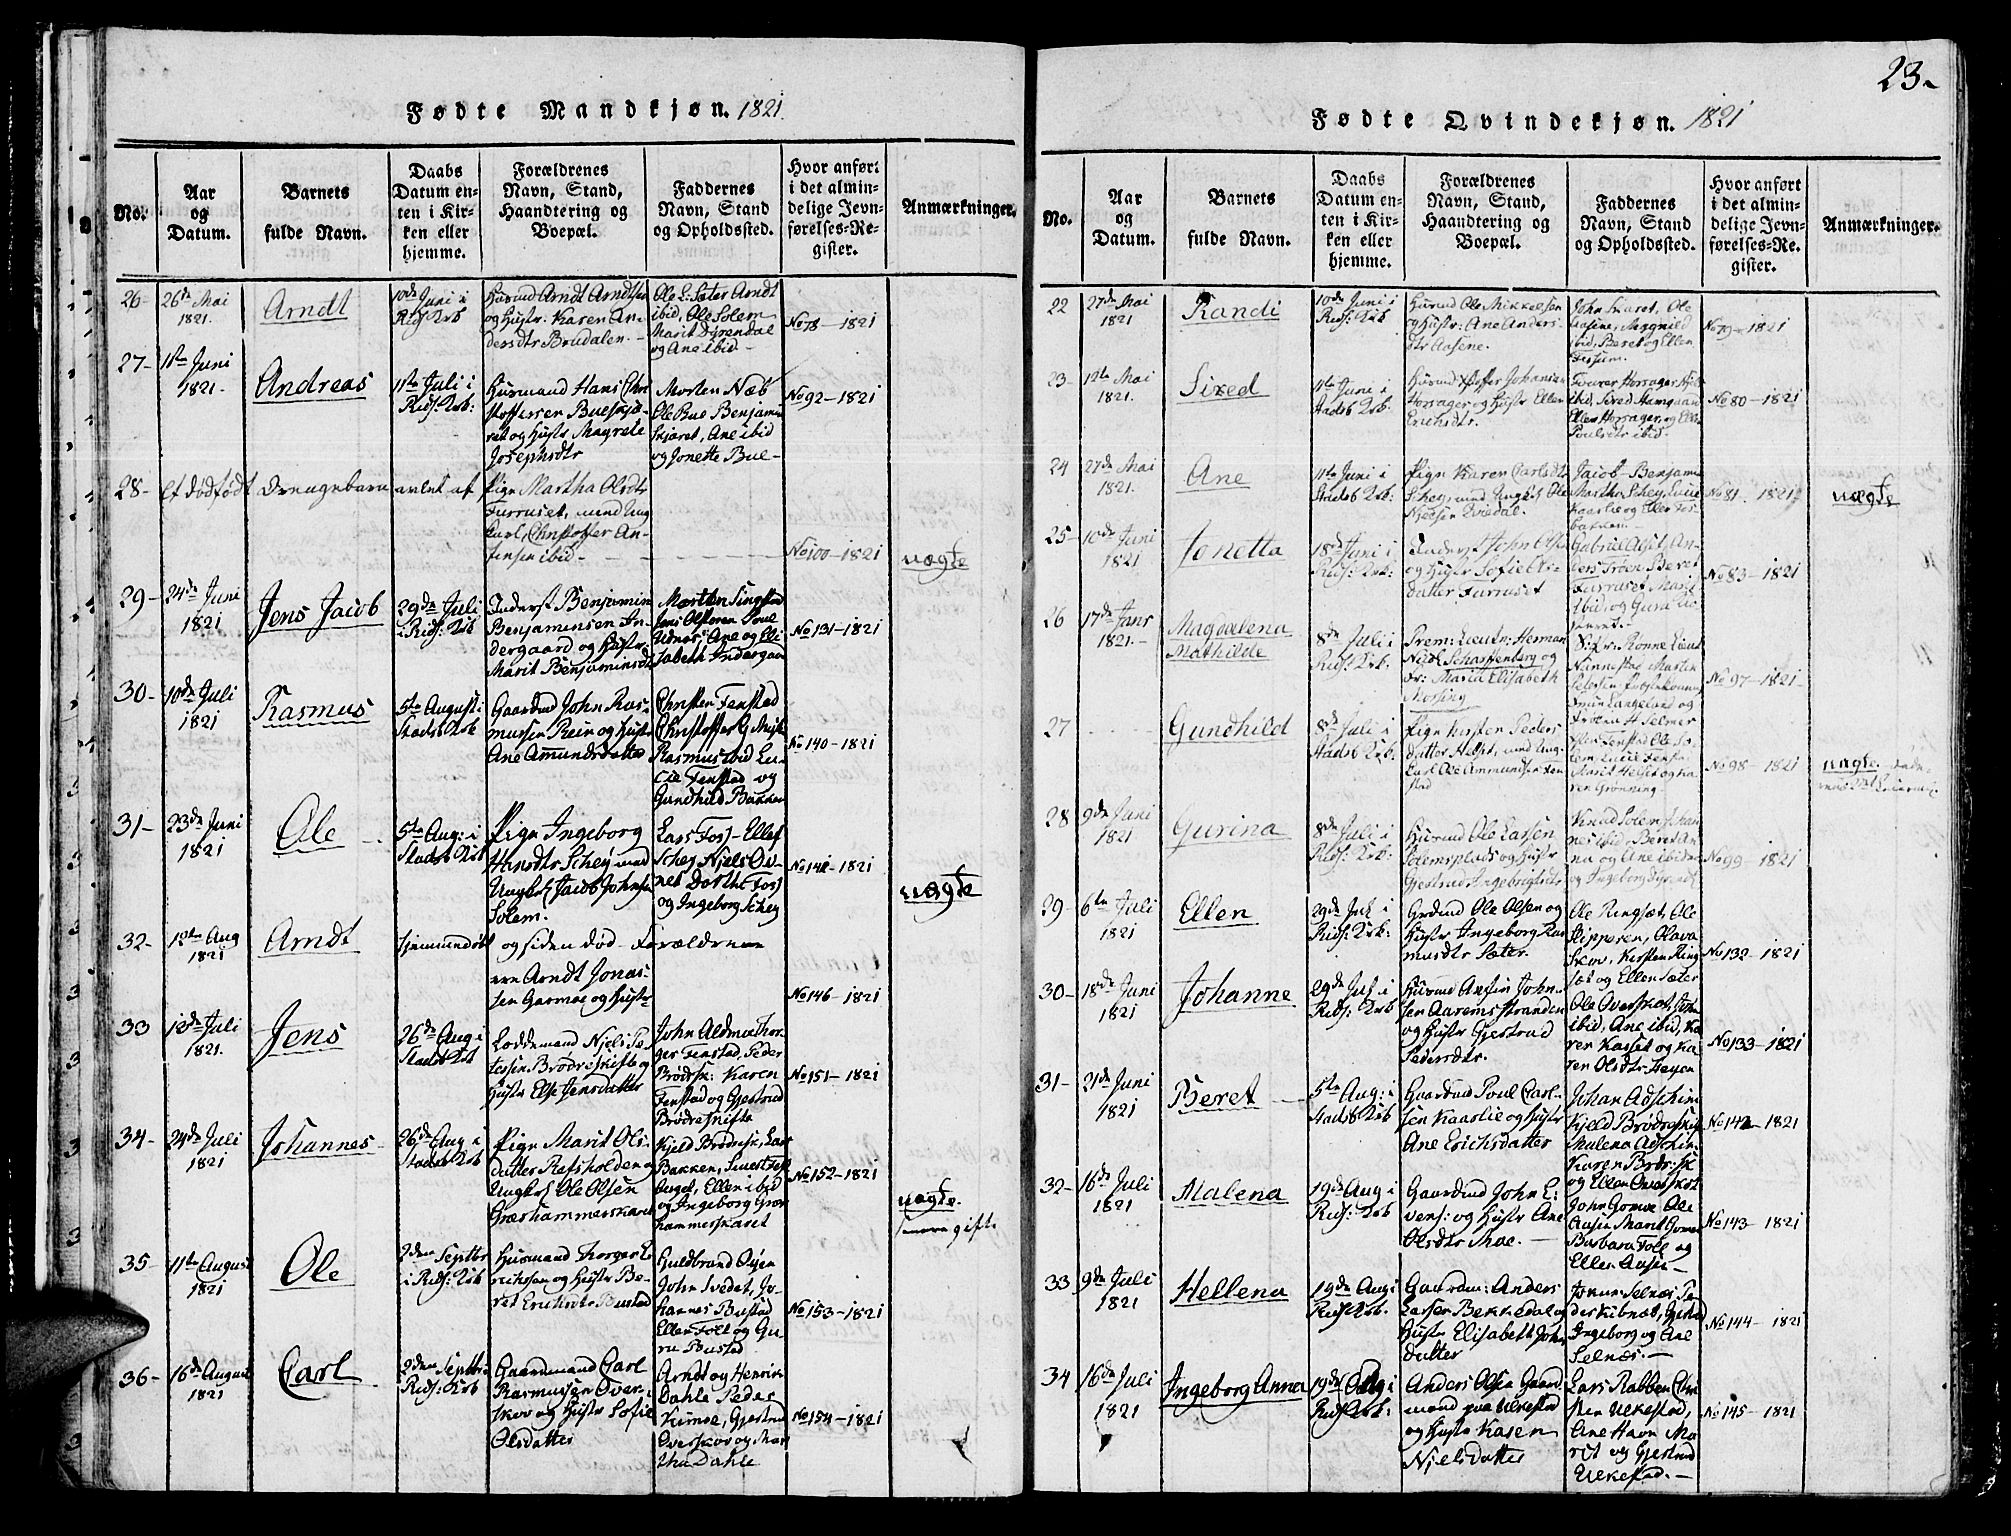 Fødte Mandkjøn. 1821.
No.
Aar
og
Datum.
Barnets
fulde Navn.
Daabs
Datum en-
ten i Kir-
ken eller
hjemme.
Forældrenes
Navn, Stand,
Haandtering og
Boepæl.
Faddernes
Navn, Stand
og Opholdssted.
Hvor anført
i det almin-
delige Jevn-
førelses-Re-
gister.
Anmærkninger.
26- 26de Mai
1821.
Arndt
10de Juni i
Husmd Arndt Arndtsen
og Hustr: Karen An-
dersdtr Brudalen.
Ole E: Sæter Arndt
ibid, Ole Solem
Marit Dyrendal
og Ane ibid
No 78-1821
27- 11te Juni
1821.
Andreas
11te Juli i
Husmand Hans Chri-
stoffersen Bueskjæ-
ret og Hustr Magrete
Josephsdtr
Morten Næb
Ole Bue Benjamin
Skjæret, Ane ibid
og Jonette Bue
No 92-1821
28- et dødfødt Drengebarn avlet af
Pige Martha Olsdtr
Furruset, med Ung
Karl, Christoffer An-
fensen ibid
No 100-1821
uægte
29- 24de Juni
1821
Jens Jacob
29de Juli
Inderst Benjamin
Benjaminsen In-
dergaard og Hustr:
Marit Benjaminsdtr
Morten Singstad
Udnæs, Ane og Eli-
sabeth Indergaar
No 131-1821
30- 10de Juli
1821
Rasmus
5te August i
Gaardmd John Ras-
mussen Rein og Hustr
Ane Amundsdatter
Christen Fenstad
Rasmus ibid Lu-
cie Fenstad og
Gundhild Bakken
No 140-1821
31- 23de Juni
1821
Ole
5te Aug: i
Pige Ingeborg
Hansdtr Schey med
Ungkarl Jacob Johnsen
Solem.
Lars Foss Ellef
Schey Niels Ud-
næs Dorthe Foss
og Ingeborg Schey
No 141-1821
uægte
32- 12te Aug
1821
Arndt
hjemmedøbt og siden død. Forældrene
ere Arndt Jonas-
sen Garmoe og Hustr
No 146-1821
33 12de Juli
1821.
Jens
26de Aug i
Loddemand Niels Pe-
tersen Brødreskifte og
Hustr Else Jensdatter
John Aldmoe Thor-
ger Fenstad, Peder
Brødsk: Karen
Fenstad og Gjertrud
Brødreskifte
No 151-1821
34- 24de Juli
1821
Johannes
26de Aug i
Pige Marit Ols-
datter Refsholden og
Ungkarl Ole Olsen
Græshammerskaret
Kjeld Brødresk, Lars
Bakken,
Ellen ibid
og Ingeborg Græs
hammerskaret
No 152-1821
uægte.
gifte
35 11te August
1821
Ole
2den Septbr
Husmand Thorger E-
richsen og Hustr Be-
ret Erichsdtr Bustad
Guldbrand Øyen
John Svedet, Jo-
hannes Bustad
Ellen Foll og Gu-
ru Bustad
No 153-1821
36- 16de August
1821
Carl
2den Septbr
Gaardmand Carl
Rasmussen Over-
skov og Hustr Sofie
Olsdatter
Arndt og Henrik
Dahle Peder
Kumøe, Gjertrud
Overskov og Mar-
tha Dahle
No 154-1821
23
Fødte Qvindekjøn. 1821
No.
Aar
og
Datum.
Barnets
fulde Navn.
Daabs
Datum en-
ten i Kir-
ken eller
hjemme.
Forældrenes
Navn, Stand,
Haandtering og
Boepæl.
Faddernes
Navn, Stand
og Opholdssted.
Hvor anført
i det almin-
delige Jevn-
førelses-Re-
gister.
Anmærkninger.
22 27de Mai
1821
Randi
10de Juni i
Husmd Ole Mikkelsen
og Hustr: Ane Anders-
dtr Aasene.
Aasene, Magnild
ibid, Beret og Ellen
Fossum.
No 79-1821
23- 12te Mai
1821.
Sired
11te Juni i
Husmd Stoffer Johansen
Horsager og Hustr Ellen
Erichsdtr.
Ellen Horsager, og Ellen
Poulsdtr ibid.
No 80-1821
24 27de Mai
1821.
Ane
11te Juni i
Pige Karen Carlsdtr
Schey, med Ungkarl Ole
Nielsen
Jacob Benjamin
Martha Schey, Lucie
Kaarlie og Ellen Fos-
bakken.
No 81. 1821
uægte
25- 10de Juni
1821
Jonetta
18de Juni i
Inderst John Olsen
og Hustr Sofie Ols-
datter Furruset
Furruset Marit
ibid, og
No 83-1821
26 17de Janr
1821.
Magdalena
Mathilde
8de Juli i
Prem: Lieutn: Herman
Nicol Scharffenberg og
Fr: Maria Elisabeth
Mossing
Hr: Rønne Lieut
Nannestad Marten
Petersen
Langelund og
Frøken H Selmer
No 97-1821
27
Gundhild
8de Juli i
Pige Kirsten Peders
datter Helset, med Ung-
karl Ole Ammundsen Fen
stad
Marit Helset og Ka-
ren Grønning
No 98-1821
uægte.
28 9de Juni
1821
Gurina
8de Juli i
Husmd Ole Larsen
Solemsplads og Hustr
Gjertrud Ingebrigtsdtr
Knud Solem Johan-
nes ibid, Beret An-
na og Ane ibid
No 99-1821
29- 6te Juli
1821
Ellen
29de Juli i
Grdmd Ole Olsen og
Hustr Ingeborg Ras
musdtr Sæter.
Ole Ringsæt, Ole
Slipperen, Olava
Skov, Kirsten Ring
sæt og Ellen Sæter
No 132-1821
30- 18de Juni
1821
Johanne
29de Juli i
Husmd Anfin John-
sen Aaremsstranden
og Hustr Gjertrud
Pedersdtr.
Ole Overskot, John
ibid, Ane ibid, Ka-
ren Kasset og Ka-
ren Olsdtr Høyen
No 133-1821
31- 21de Juni
1821
Beret
5te Aug: i
Gaardmd Poul Carl-
sen Kaarlie og Hustr
Ane Erichsdatter
Johan Adschim
Kjeld Brødreskift
Malena Adschim
Karen Brdr: sk
og Ellen Overskot
No 142-1821
32- 16de Juli
1821
Malena
19de Aug i
Gaardmd John E-
vens: og Hustr Ane
Olsdtr Moe.
John Gomoe Ole
Aasen Marit Gomoe
Barbara Foll og
Ellen Aasen
No 143-1821
33 9de Juli
1821
Hellena
19de Aug i
Gaardm: Anders
Larsen Bekkedal og
Hustr Elisabeth John
datter
Ingeborg og Ane
Selnæs.
No 144-1821
34 16de Juli
1821
Ingeborg Anna
19de Aug i
Anders Olsen Gaard
mand paa Ulkestad
og Hustr Karen
Nielsdatter
Lars Rabben Chri
sten Ulkestad,
Ane Havn Ma-
rit og Gjertrud
Ulkestad.
No 145-1821